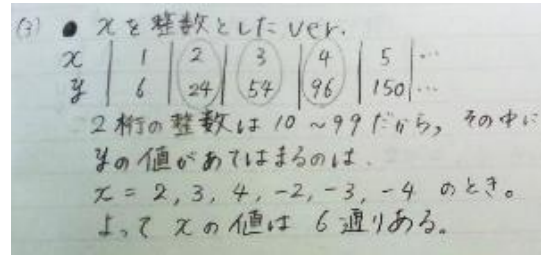 (3) ● xを整数としたver.
x | 1 | 2 | 3 | 4 | 5 | …
y | 6 | 24 | 54 | 96 | 150 | …
2桁の整数は10~99だから, その中に
yの値があてはまるのは、
x = 2, 3, 4, -2, -3, -4 のとき。
よって xの値は 6通りある。